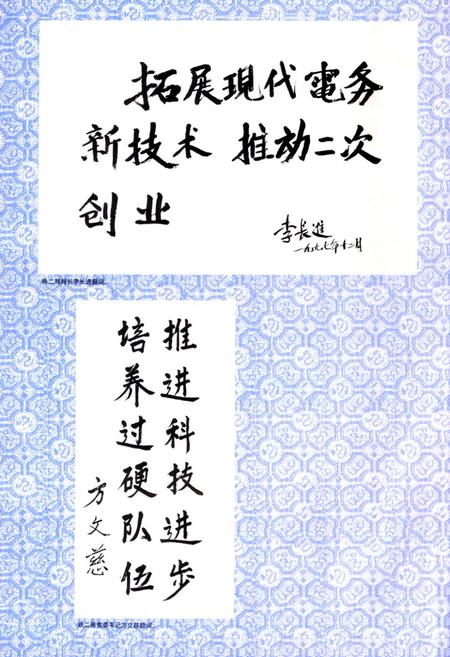 拓展現代電务
新技术 推动二次
创业
李长進
一九九七年十二月
铁二局局长李长进题词。
推进科技进步
培养过硬队伍
方文慈
铁二局党委书记方文慈题词。